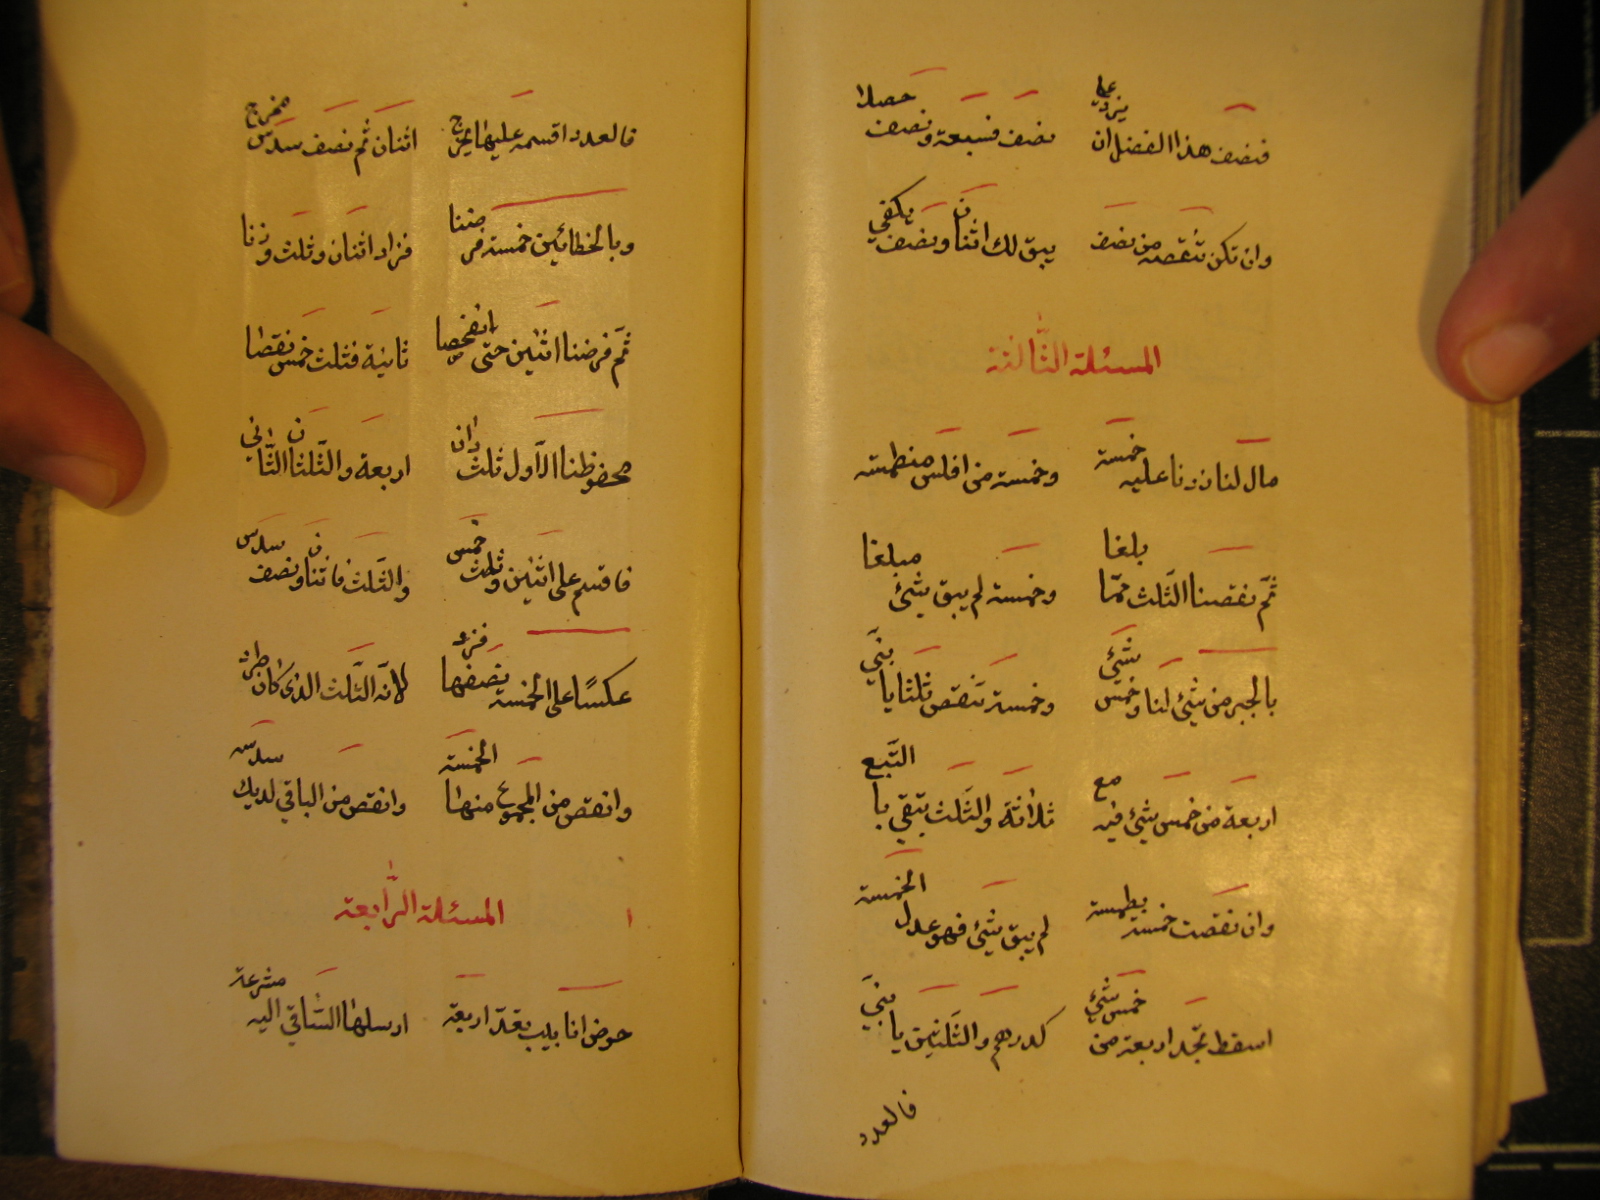 فنصف هذا الفضل ان يزد على نصف فسبعة ونصف حصلا
وان تكن تنقصه من نصف يبق لك اثنان ونصف تكفي
المسئلة الثالثة
مال لنا زدنا عليه خمسة وخمسة من افلس منطمسة
ثم نقصنا الثلث مما بلغا وخمسة لم يبق شئ مبلغا
بالجبر من شئ لنا وخمس شئ وخمسة تنقص ثلثا يا بني
اربعة من خمس شئ فيه مع ثلاثة والثلث يبقى يا التبع
وان نقصت خمسة بطمسة لم يبق شئ فهو عدل الخمسة
اسقط تجد اربعة من خمس شئ كدرهم والثلثين يا بني
فالعدد
فالعدد اقسمه عليها يخرج اثنان ثم نصف سدس مخرج
وبالخطائين خمسة فرضنا فزاد اثنان وثلث وزنا
ثم فرضنا اثنين حتى انفحصا ثانية فثلث خمس نقصا
محفوظنا الاول ثلث دان اربعة والثلثان الثاني
فاقسم على اثنين وثلث خمس والثلث فاثنان ونصف سدس
عكسًا على الخمسة نصفها فزد لانه الثلث الذي كان طرد
وانقص من المجموع منها الخمسة وانقص من الباقي لديك سدسه
المسئلة الرابعة
حوض انابيب بعد اربعة ارسلها الساقي اليه مشرعة